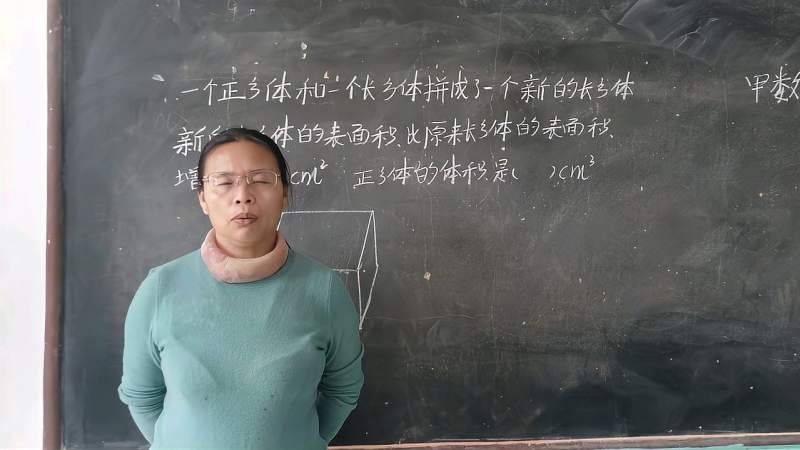 一个正方体和一个长方体拼成了一个新的长方体
新的 体的表面积比原来长方体的表面积
增 cm² 正方体的体积是( )cm³
甲数